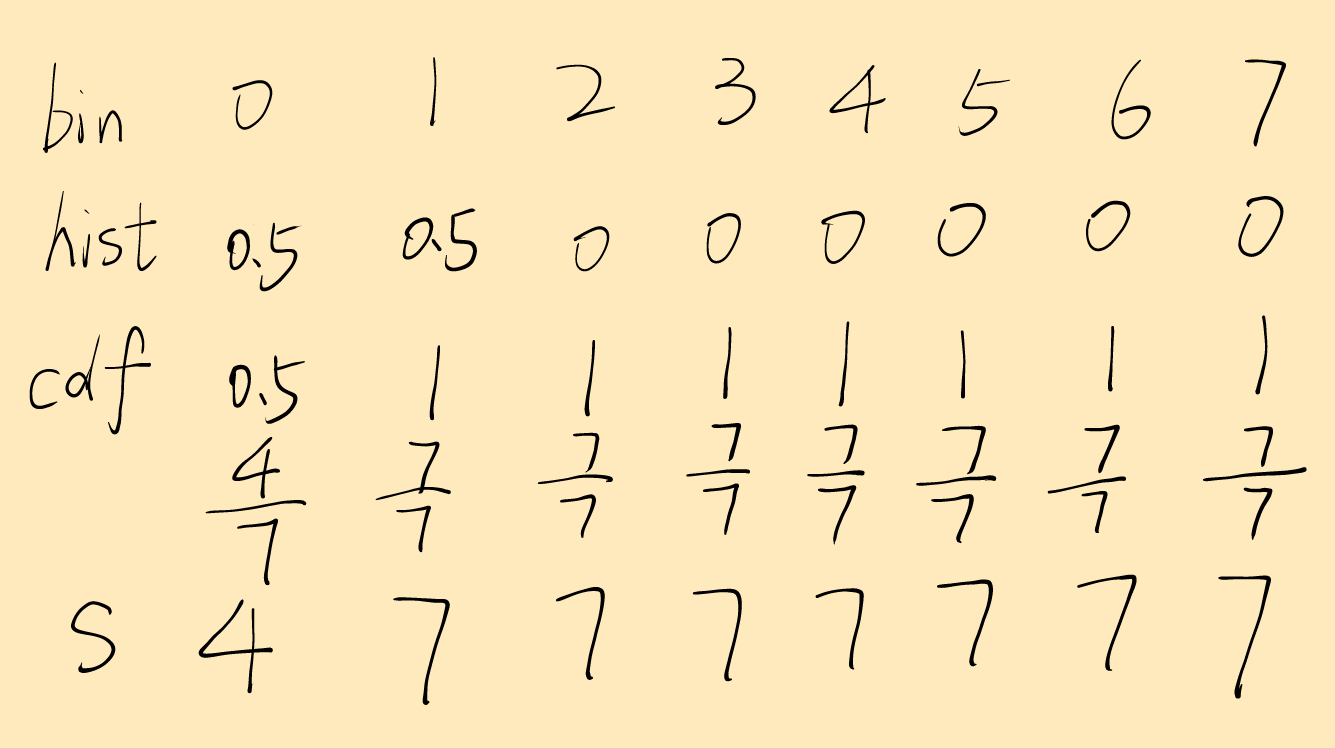 bin 0 1 2 3 4 5 6 7
hist 0.5 0.5 0 0 0 0 0 0
cdf 0.5 1 1 1 1 1 1 1
4/7 7/7 7/7 7/7 7/7 7/7 7/7 7/7
S 4 7 7 7 7 7 7 7